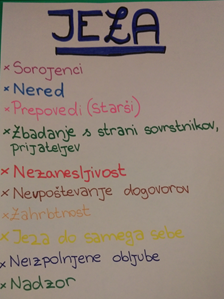 JEZA
× Sorojenci
× Nered
× Prepovedi (starši)
× Zbadanje s strani sovrstnikov,
prijateljev
× Nezanesljivost
× Neupoštevanje dogovorov
× Zahrbtnost
× Jeza do samega sebe
× Neizpolnjene obljube
× Nadzor